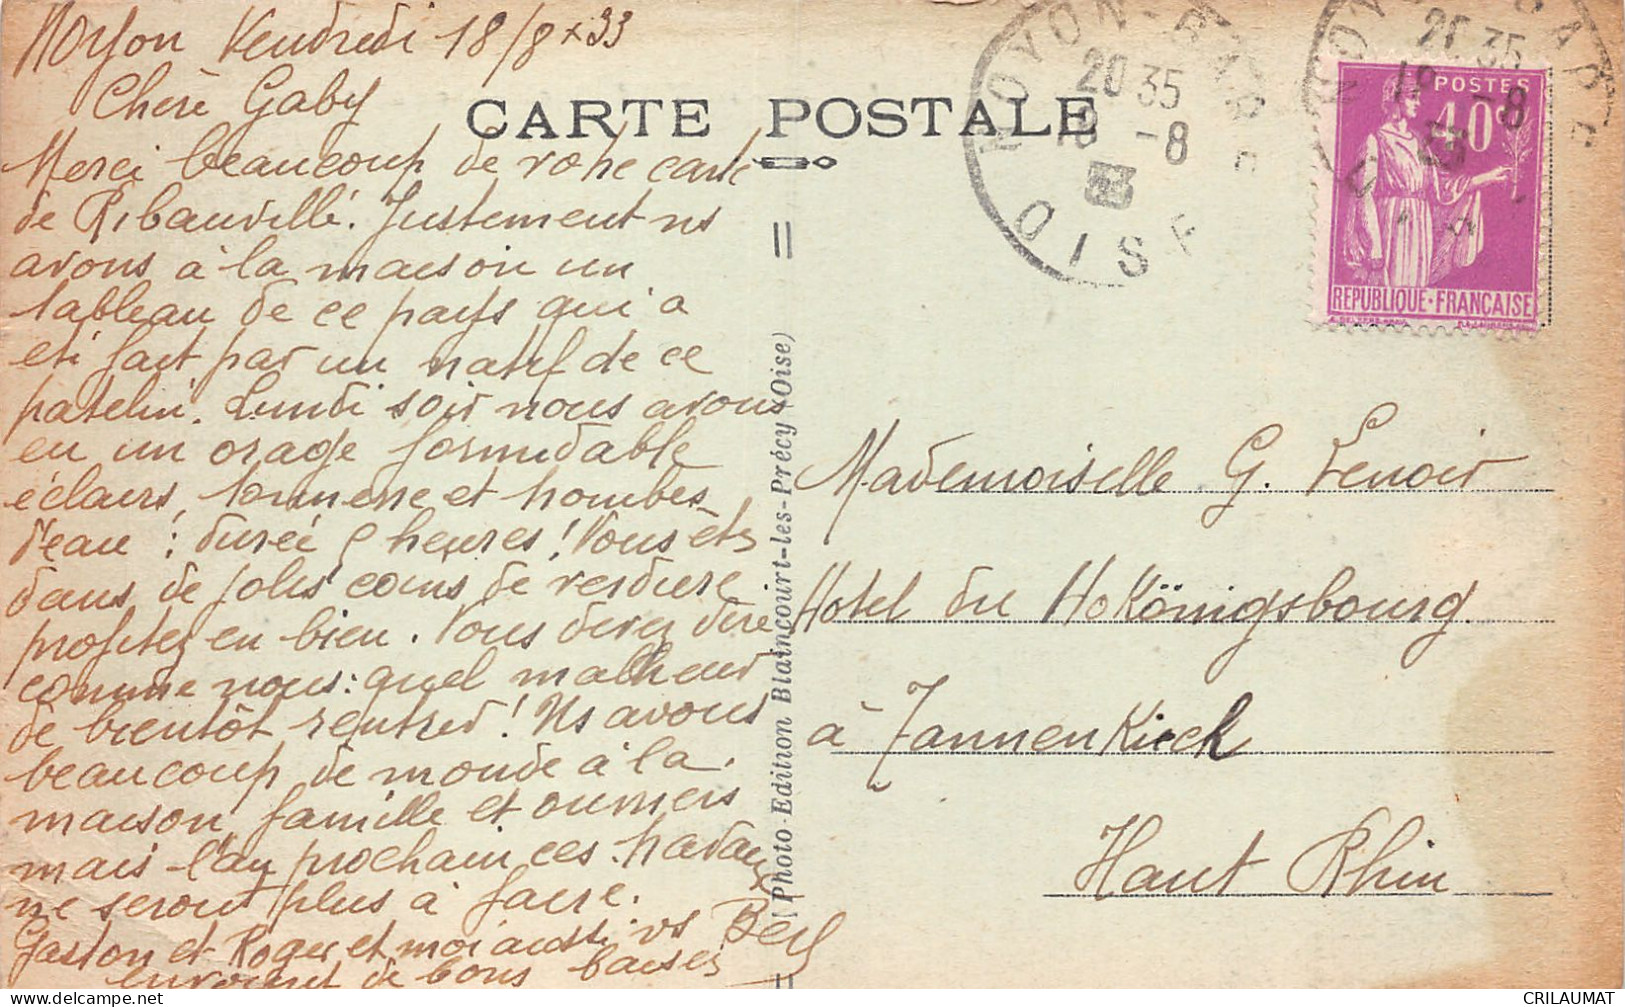 Noyon Vendredi 18/8 x 33
Chère Gaby
CARTE POSTALE
Merci beaucoup de votre carte
de Ribauvillé. Justement ns
avons à la maison un
tableau de ce pays qui a
été fait par un natif de ce
patelin. Lundi soir nous avons
eu un orage formidable
éclairs, tonnerre et trombes
d'eau : durée 9 heures ! Vous êtes
dans de jolis coins de verdure
profitez en bien. Vous devez dire
comme nous : quel malheur
de bientôt rentrer ! Ns avons
beaucoup de monde à la
maison, famille et ouvriers
mais l'an prochain ces travaux
ne seront plus à faire.
Gaston et Roger et moi aussi vs
envoient de bons baisers
(Photo-Edition Blaincourt-les-Précy (Oise)
NOYON-GARE
20 35
18 -8
33
OISE
NOYON-GARE
20 35
18 -8
33
POSTES
40c
REPUBLIQUE·FRANÇAISE
Mademoiselle G. Lenoir
Hotel du HoKönigsbourg
à Tannenkirch
Haut Rhin
CRILAUMAT